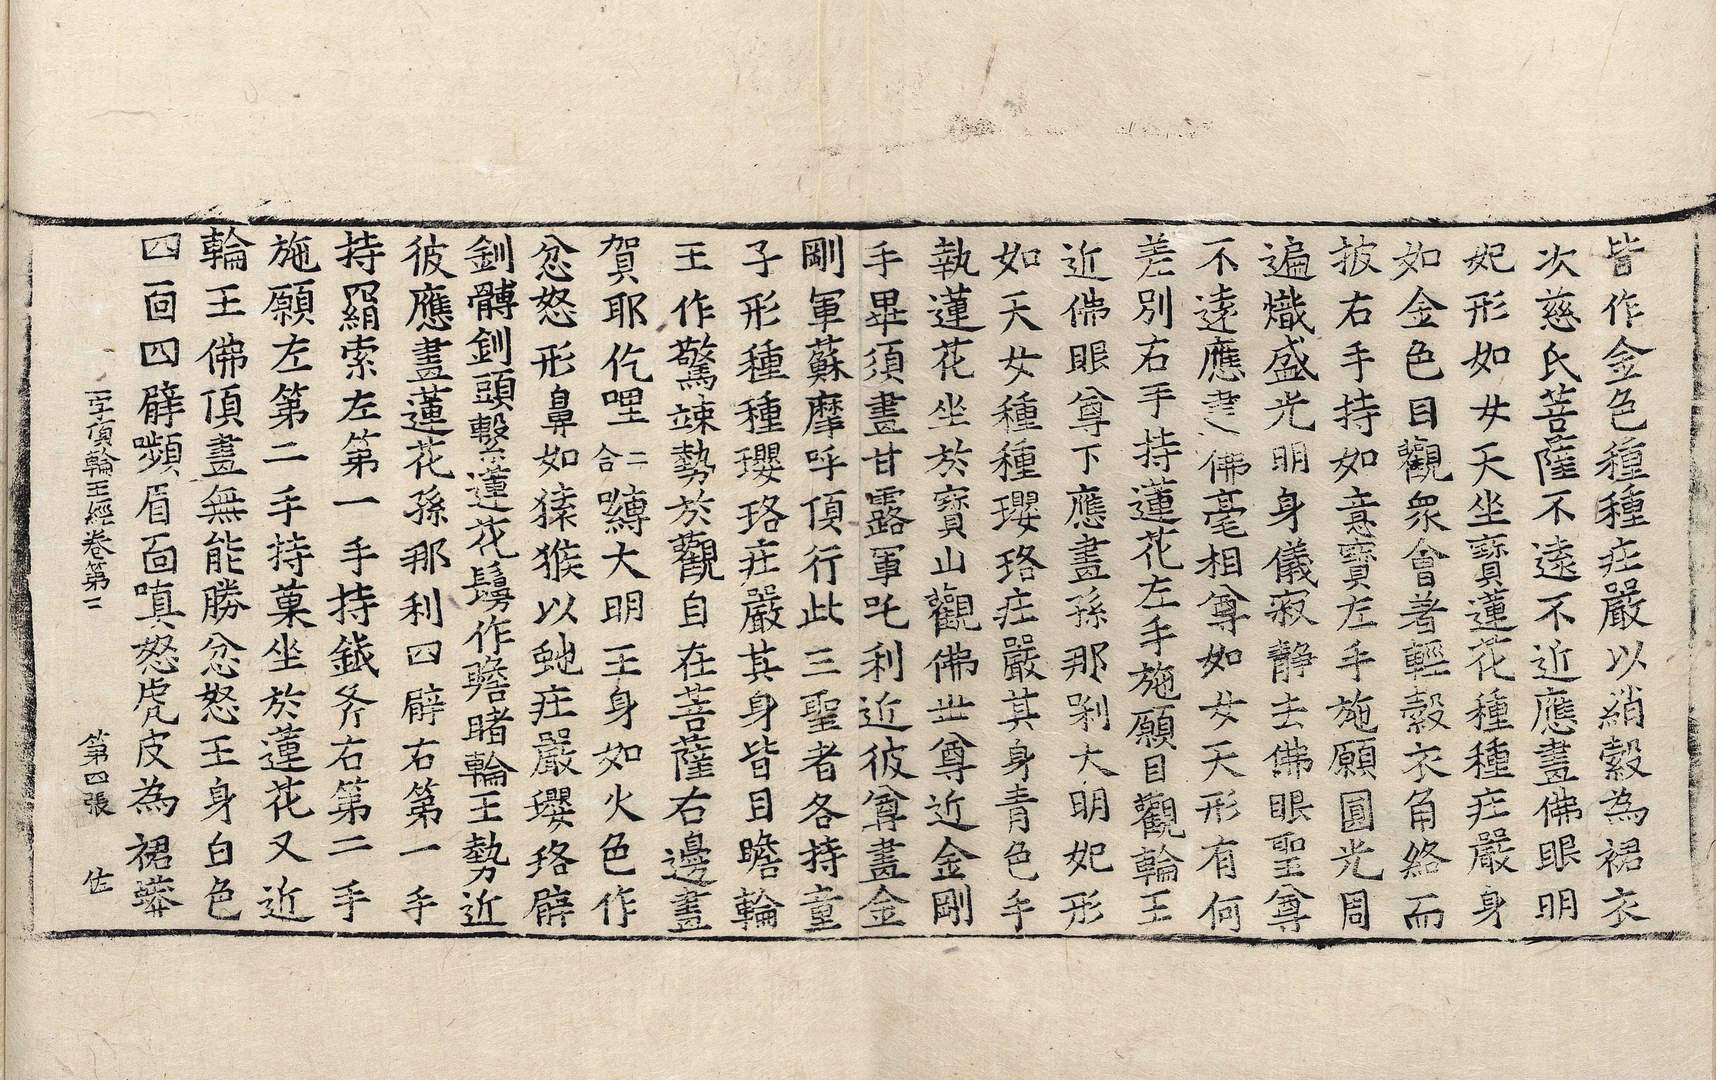 皆作金色種種庄嚴以綃縠為裙衣
次慈氏菩薩不遠不近應畫佛眼明
妃形如女天坐寶蓮花種種庄嚴身
如金色目觀衆會著輕縠衣角絡而
披右手持如意寶左手施願圓光周
遍熾盛光明身儀寂静去佛眼聖尊
不遠應畫佛毫相尊如女天形有何
差別右手持蓮花左手施願目觀輪王
近佛眼尊下應畫孫那剎大明妃形
如天女種種瓔珞庄嚴其身青色手
執蓮花坐於寶山觀佛世尊近金剛
手畢須畫甘露軍吒利近彼尊畫金
剛軍蘇摩呼頂行此三聖者各持童
子形種種瓔珞庄嚴其身皆目瞻輪
王作驚竦勢於觀自在菩薩右邊畫
賀耶仡哩二合嚩大明王身如火色作
忿怒形鼻如猿猴以虵庄嚴瓔珞臂
釧髆釧頭繫蓮花鬘作瞻睹輪王勢近
彼應畫蓮花孫那利四臂右第一手
持羂索左第一手持鉞斧右第二手
施願左第二手持菓坐於蓮花又近
輪王佛頂畫無能勝忿怒王身白色
四面四臂嚬眉面嗔怒虎皮為裙蟒
一字頂輪王經卷第二 第四張 佐